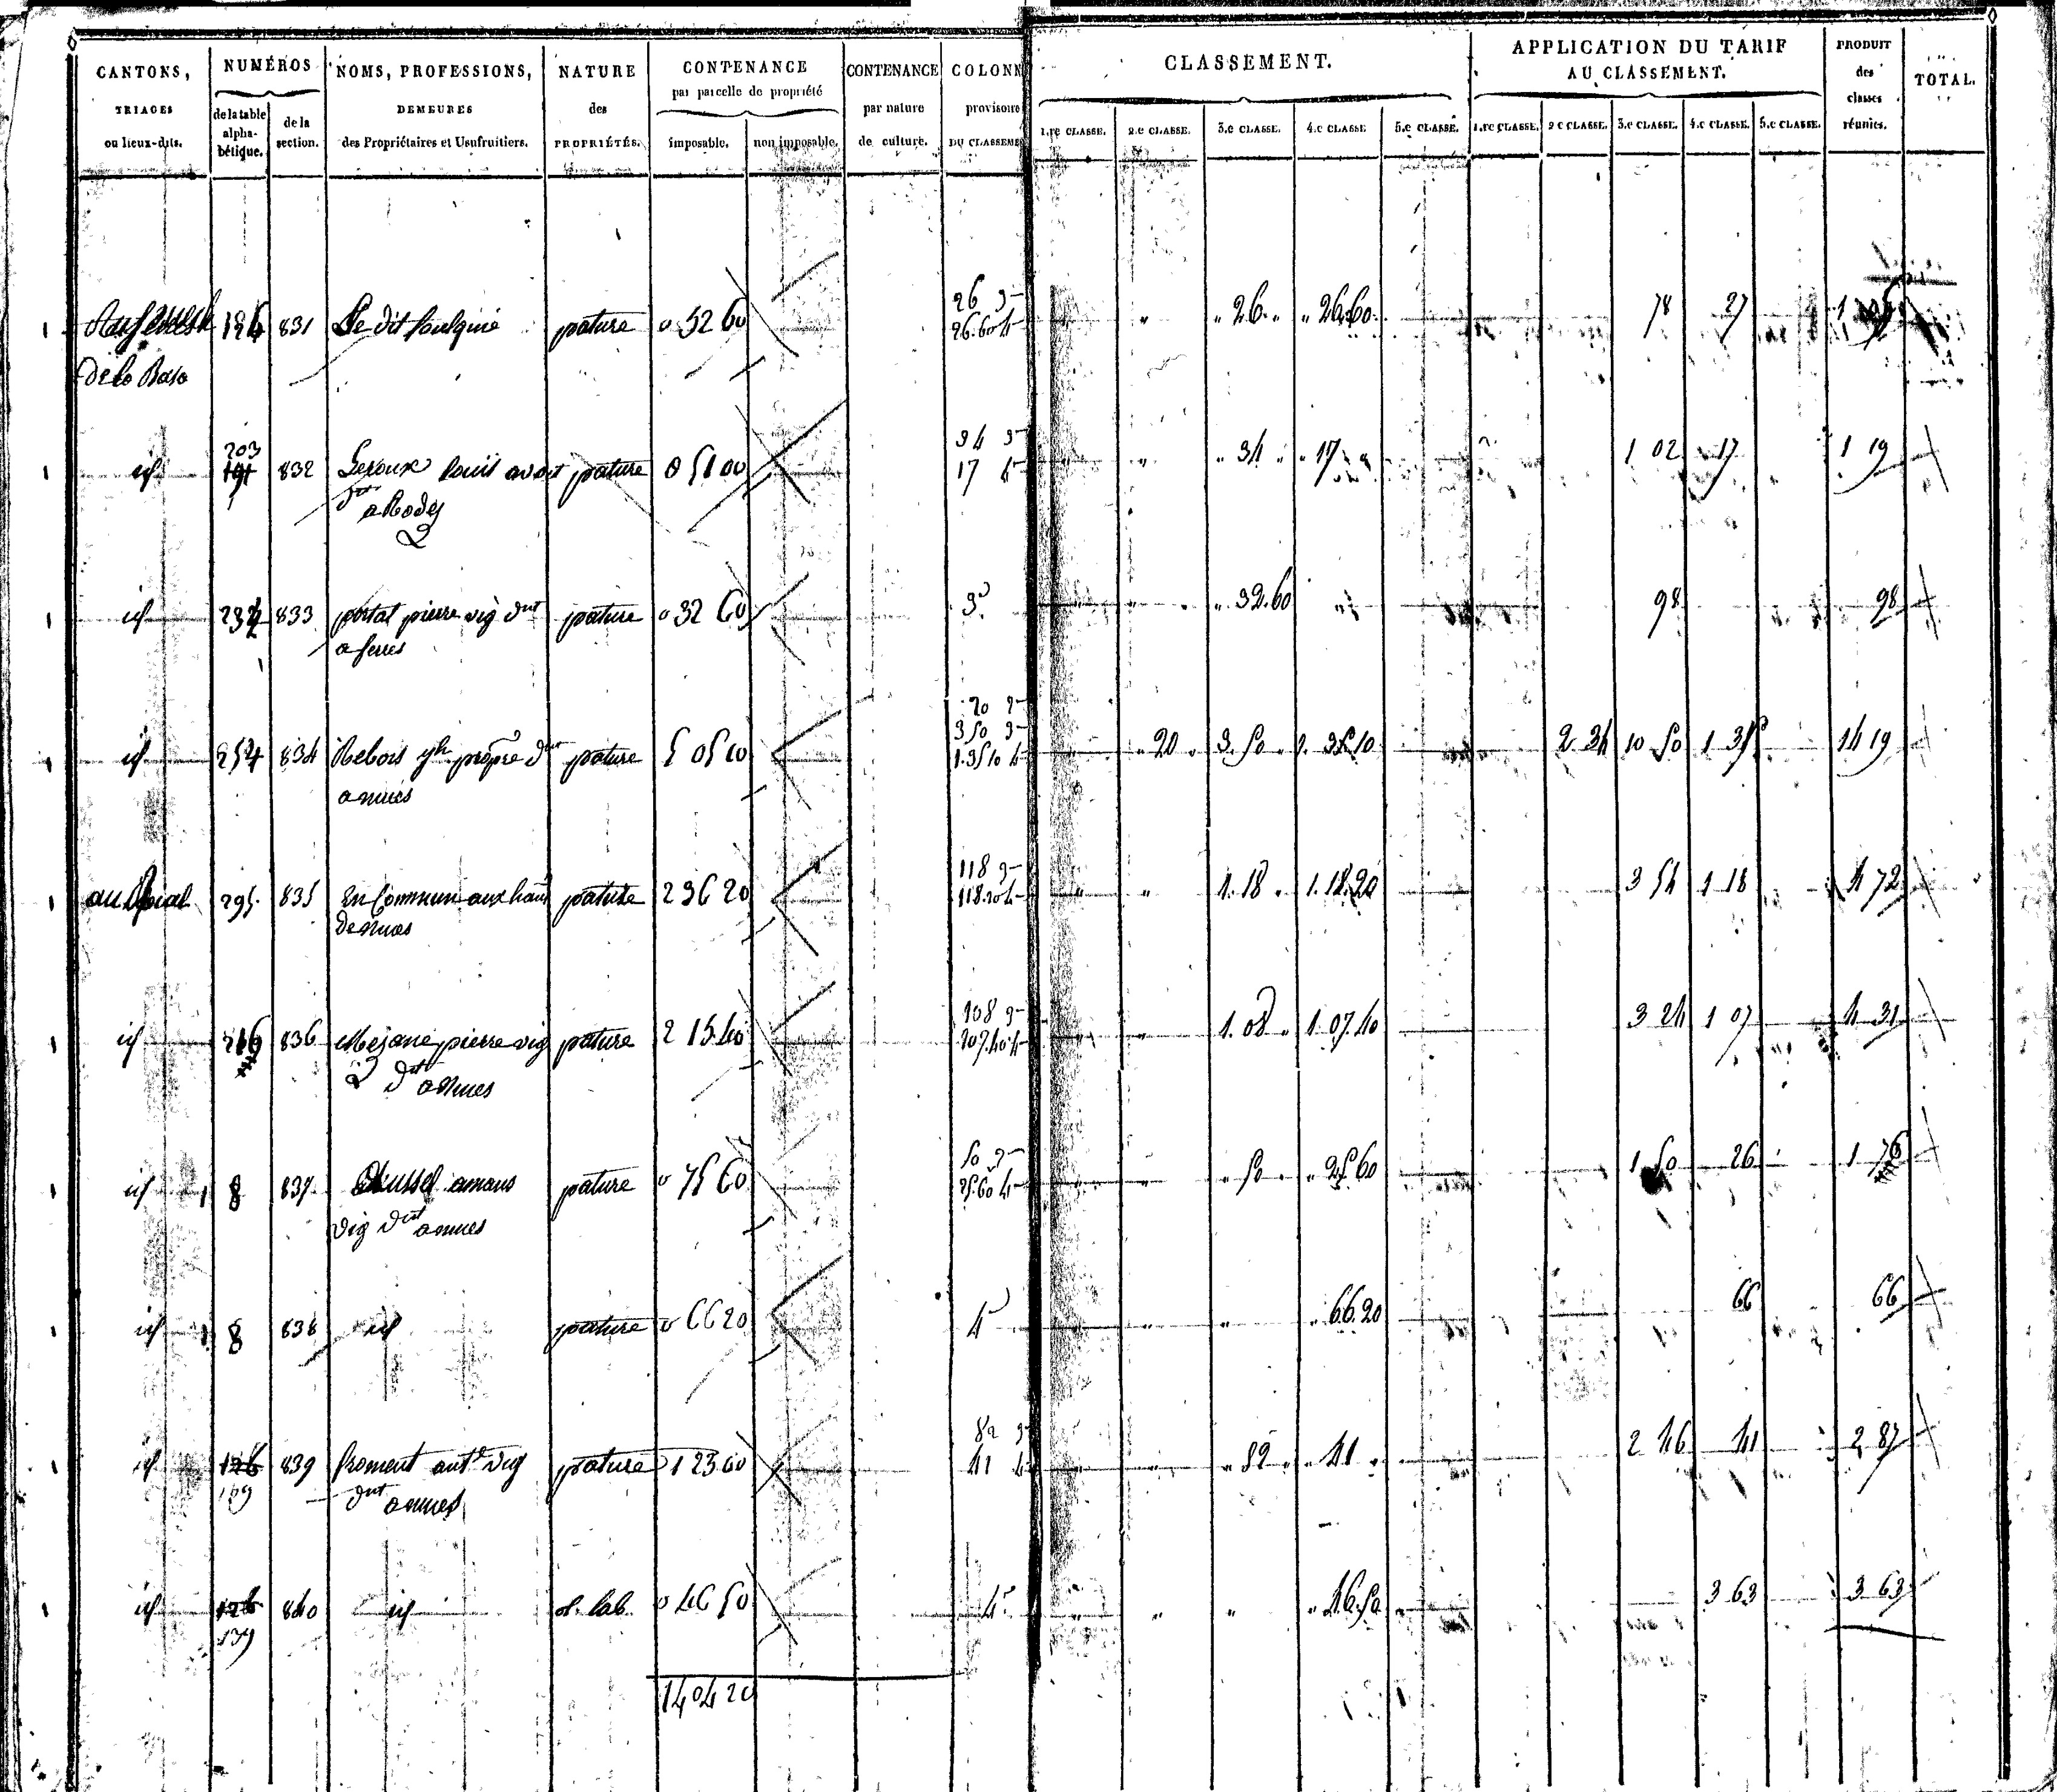 CANTONS, TRIAGES ou lieux-dits.
NUMÉROS de la table alphabétique. de la section.
NOMS, PROFESSIONS, DEMEURES des Propriétaires et Usufruitiers.
NATURE des PROPRIÉTÉS.
CONTENANCE par parcelle de propriété imposable. non imposable.
CONTENANCE par nature de culture.
COLONN provisoire DU CLASSEME
CLASSEMENT.
1.re CLASSE. 2.e CLASSE. 3.e CLASSE. 4.e CLASSE 5.e CLASSE.
APPLICATION DU TARIF AU CLASSEMENT.
1.re CLASSE. 2e CLASSE. 3.e CLASSE. 4.e CLASSE. 5.e CLASSE.
PRODUIT des classes réunies.
TOTAL.
831 Le dit pature 0 52 60 26 3 26.60 4 " 26 " 26.60 78 27 1
De la
203
id 191 832 Leroux louis avoat pature 0 51 00 34 3 17 4 " 34 " 17 1 02 17 1 19
a Rodez
id 833 portat pierre vig dnt pature 0 32 60 3 " 32.60 98 98
a ferres
id 254 834 Rebois propre dnt pature 5 05 10 20 2 3 50 3 1.35 10 4 " 20 " 3.50 " 1.35 10 2 34 10 50 1 35 14 19
a nues
au 295 835 En Commun aux hants pature 2 36 20 118 3 118.20 4 1.18 1.18.20 3 54 1 18 4 72
de nues
id 216 836 Mejane pierre vig pature 2 15 40 108 3 107.40 4 1.08 1.07.40 3 24 1 07 4 31
2 dnt a nues
id 8 837 amans pature 0 75 60 50 3 25.60 4 " 50 " 25 60 1 50 26 1 76
vig dnt a nues
id 8 838 id pature 0 66 20 4 " 66.20 66 66
id 126 839 froment ant.e vig pature 1 23 00 82 3 41 4 " 82 " 41 2 46 41 2 87
139 dnt a nues
id 126 840 id t. lab. 0 46 50 4 " 46.50 3 63 3 63
139
14 04 20